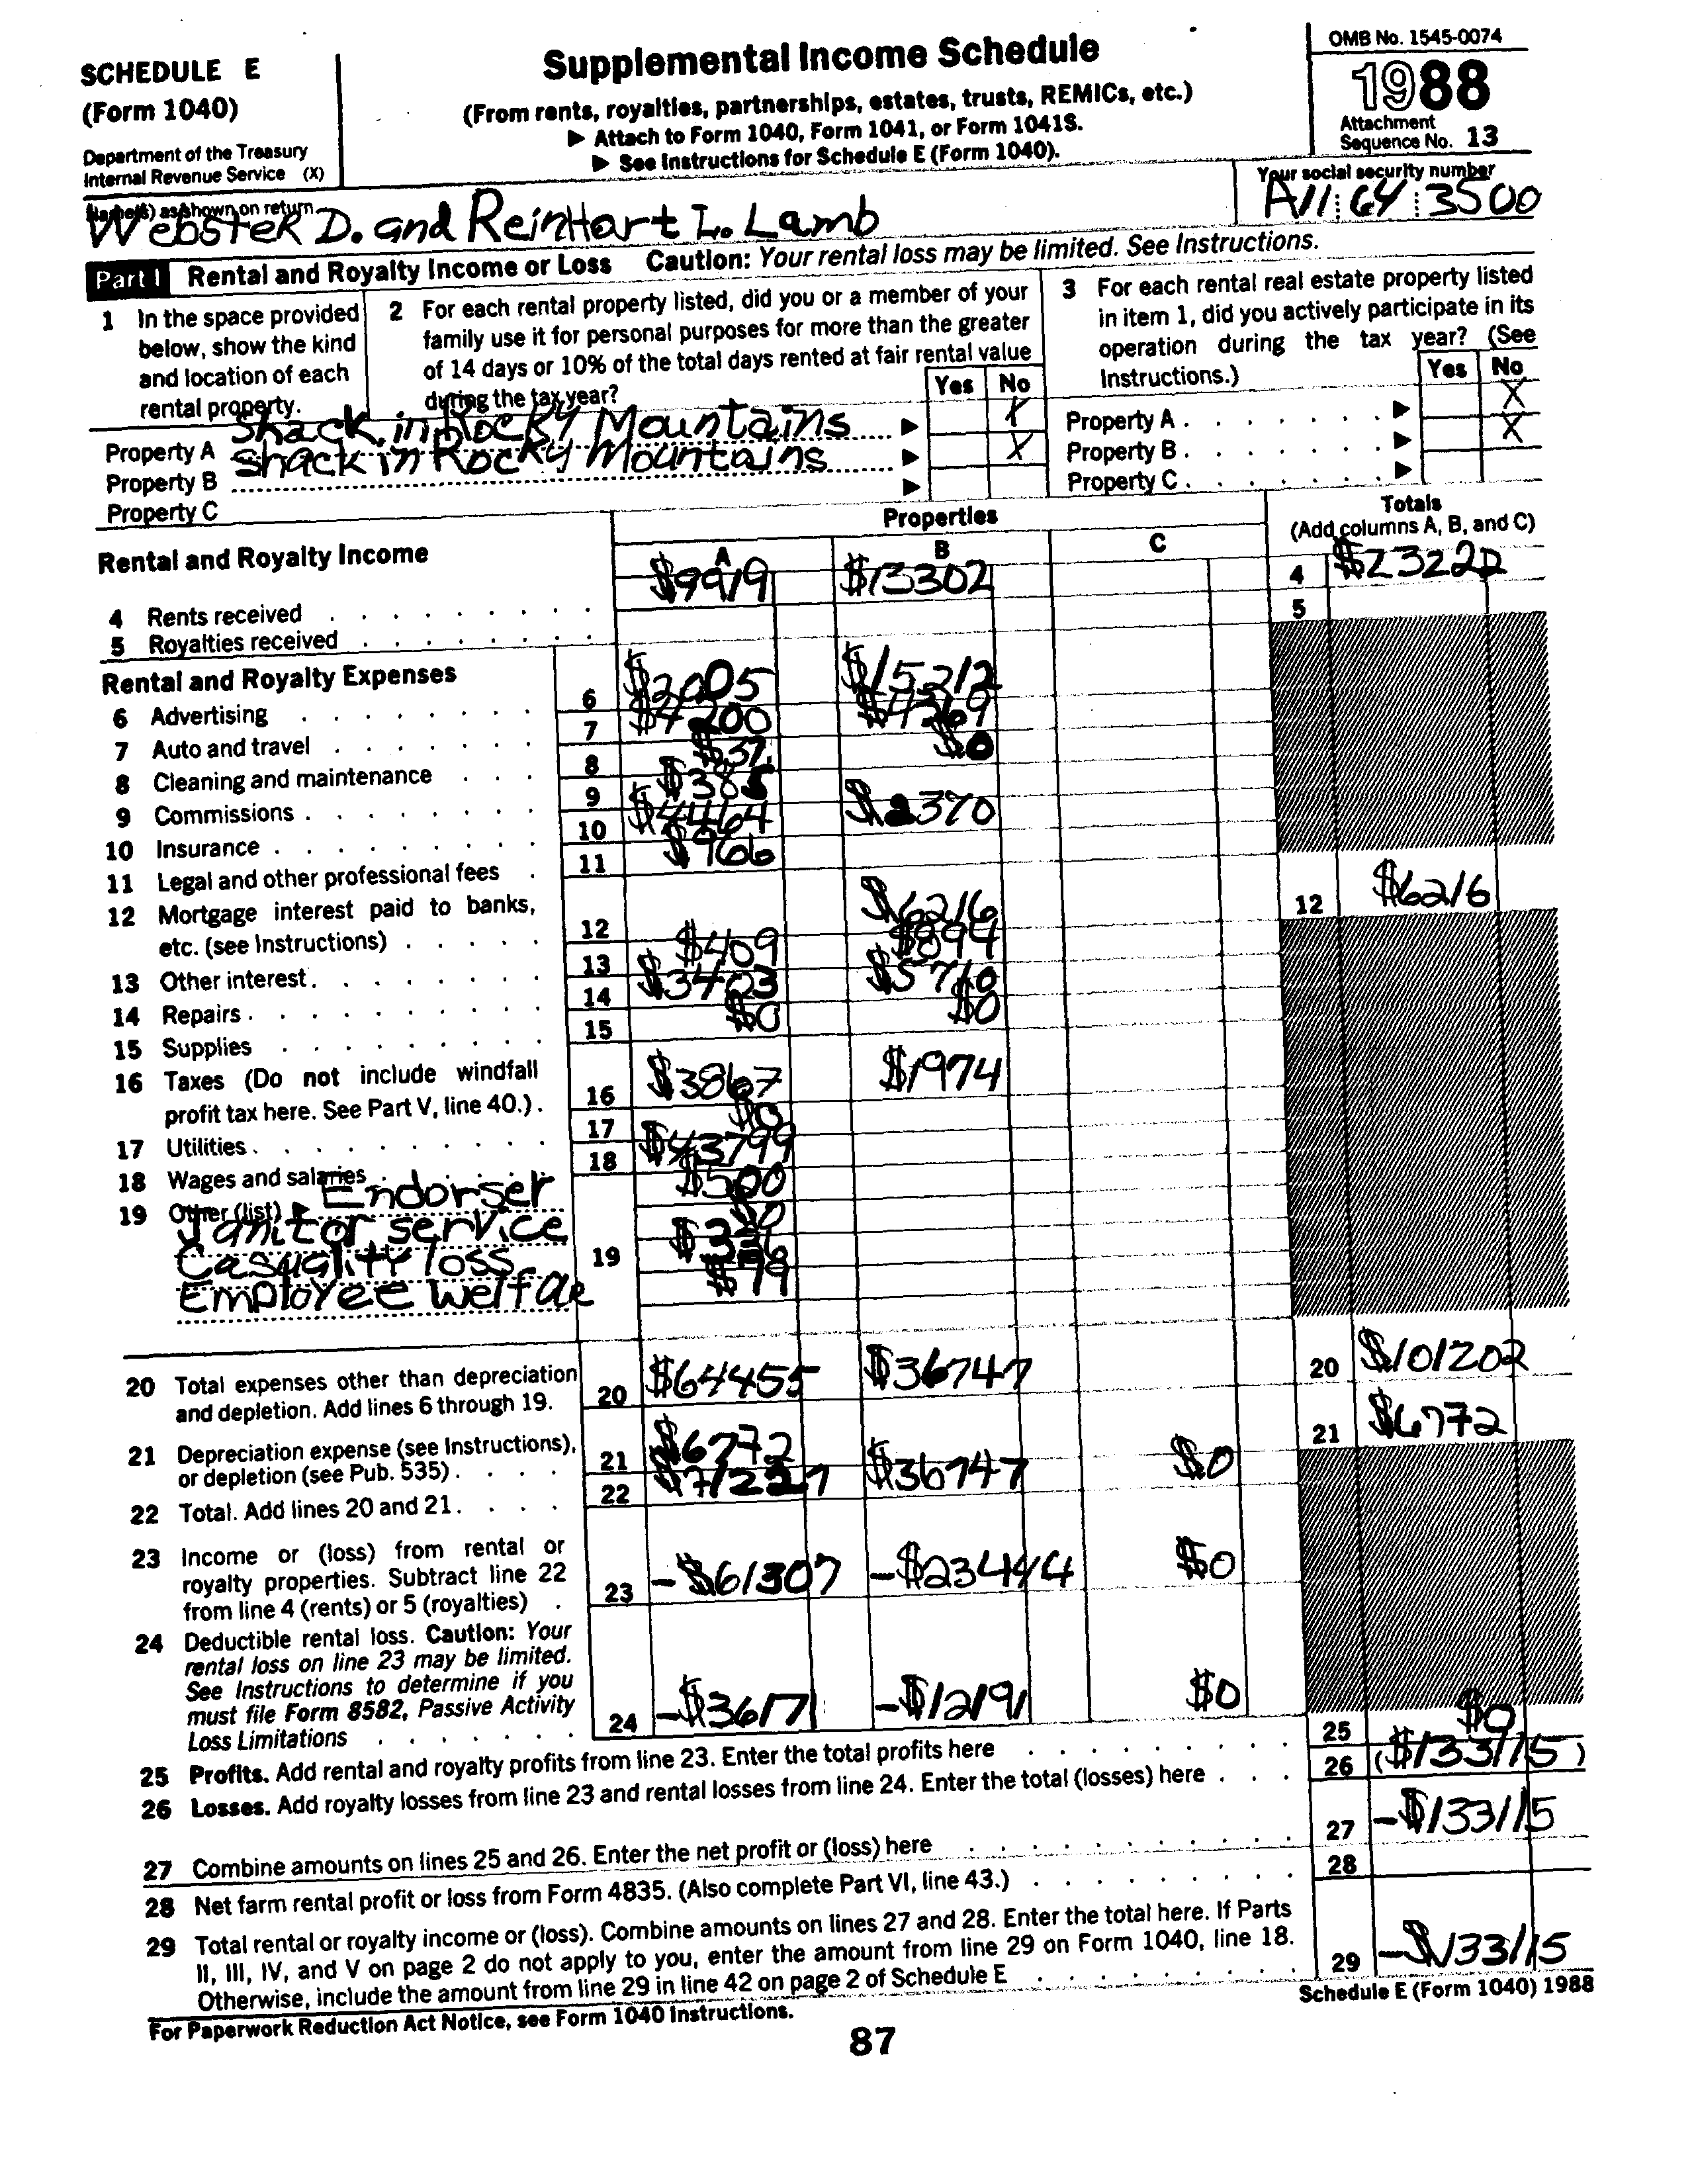 SCHEDULE E
(Form 1040)
Department of the Treasury
Internal Revenue Service (X)
Supplemental Income Schedule
(From rents, royalties, partnerships, estates, trusts, REMICs, etc.)
▶ Attach to Form 1040, Form 1041, or Form 1041S.
▶ See Instructions for Schedule E (Form 1040).
OMB No. 1545-0074
1988
Attachment
Sequence No. 13
Name(s) as shown on return
Webster D. and Reinhart L. Lamb
Your social security number
A11 64 3500
Part I Rental and Royalty Income or Loss Caution: Your rental loss may be limited. See Instructions.
1 In the space provided
below, show the kind
and location of each
rental property.
2 For each rental property listed, did you or a member of your
family use it for personal purposes for more than the greater
of 14 days or 10% of the total days rented at fair rental value
during the tax year?
Yes No
3 For each rental real estate property listed
in item 1, did you actively participate in its
operation during the tax year? (See
Instructions.)
Yes No
Property A Shack in Rocky Mountains ▶ X
Property B Shack in Rocky Mountains ▶ X
Property C ▶
Property A . . . . . . ▶ X
Property B . . . . . . . ▶ X
Property C . . . . . . . ▶
Properties
Totals
(Add columns A, B, and C)
Rental and Royalty Income
A B C
4 Rents received $9919 $13302 4 $23222
5 Royalties received 5
Rental and Royalty Expenses
6 Advertising 6 $2005 $15212
7 Auto and travel 7 $4200 $4369
8 Cleaning and maintenance 8 $37 $0
9 Commissions 9 $385
10 Insurance 10 $4464 $2370
11 Legal and other professional fees 11 $966
12 Mortgage interest paid to banks,
etc. (see Instructions) 12 $6216 12 $6216
13 Other interest 13 $409 $894
14 Repairs 14 $3403 $5710
15 Supplies 15 $0 $0
16 Taxes (Do not include windfall
profit tax here. See Part V, line 40.) 16 $3867 $1974
17 Utilities 17 $0
18 Wages and salaries 18 $43799
19 Other (list) ▶ Endorser $500
Janitor service $0
Casuality loss 19 $336
Employee welfae $79
20 Total expenses other than depreciation
and depletion. Add lines 6 through 19. 20 $64455 $36747 20 $101202
21 Depreciation expense (see Instructions),
or depletion (see Pub. 535) 21 $6772 $0 21 $6772
22 Total. Add lines 20 and 21 22 $71227 $36747
23 Income or (loss) from rental or
royalty properties. Subtract line 22
from line 4 (rents) or 5 (royalties) 23 -$61307 -$23444 $0
24 Deductible rental loss. Caution: Your
rental loss on line 23 may be limited.
See Instructions to determine if you
must file Form 8582, Passive Activity
Loss Limitations 24 -$36171 -$12191 $0
25 Profits. Add rental and royalty profits from line 23. Enter the total profits here 25 $0
26 Losses. Add royalty losses from line 23 and rental losses from line 24. Enter the total (losses) here 26 ($133115)
27 Combine amounts on lines 25 and 26. Enter the net profit or (loss) here 27 -$133115
28 Net farm rental profit or loss from Form 4835. (Also complete Part VI, line 43.) 28
29 Total rental or royalty income or (loss). Combine amounts on lines 27 and 28. Enter the total here. If Parts
II, III, IV, and V on page 2 do not apply to you, enter the amount from line 29 on Form 1040, line 18.
Otherwise, include the amount from line 29 in line 42 on page 2 of Schedule E 29 -$133115
For Paperwork Reduction Act Notice, see Form 1040 Instructions.
Schedule E (Form 1040) 1988
87